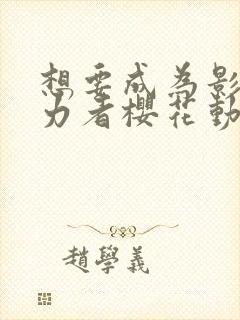 想要成為影
力者櫻花動
趙學義